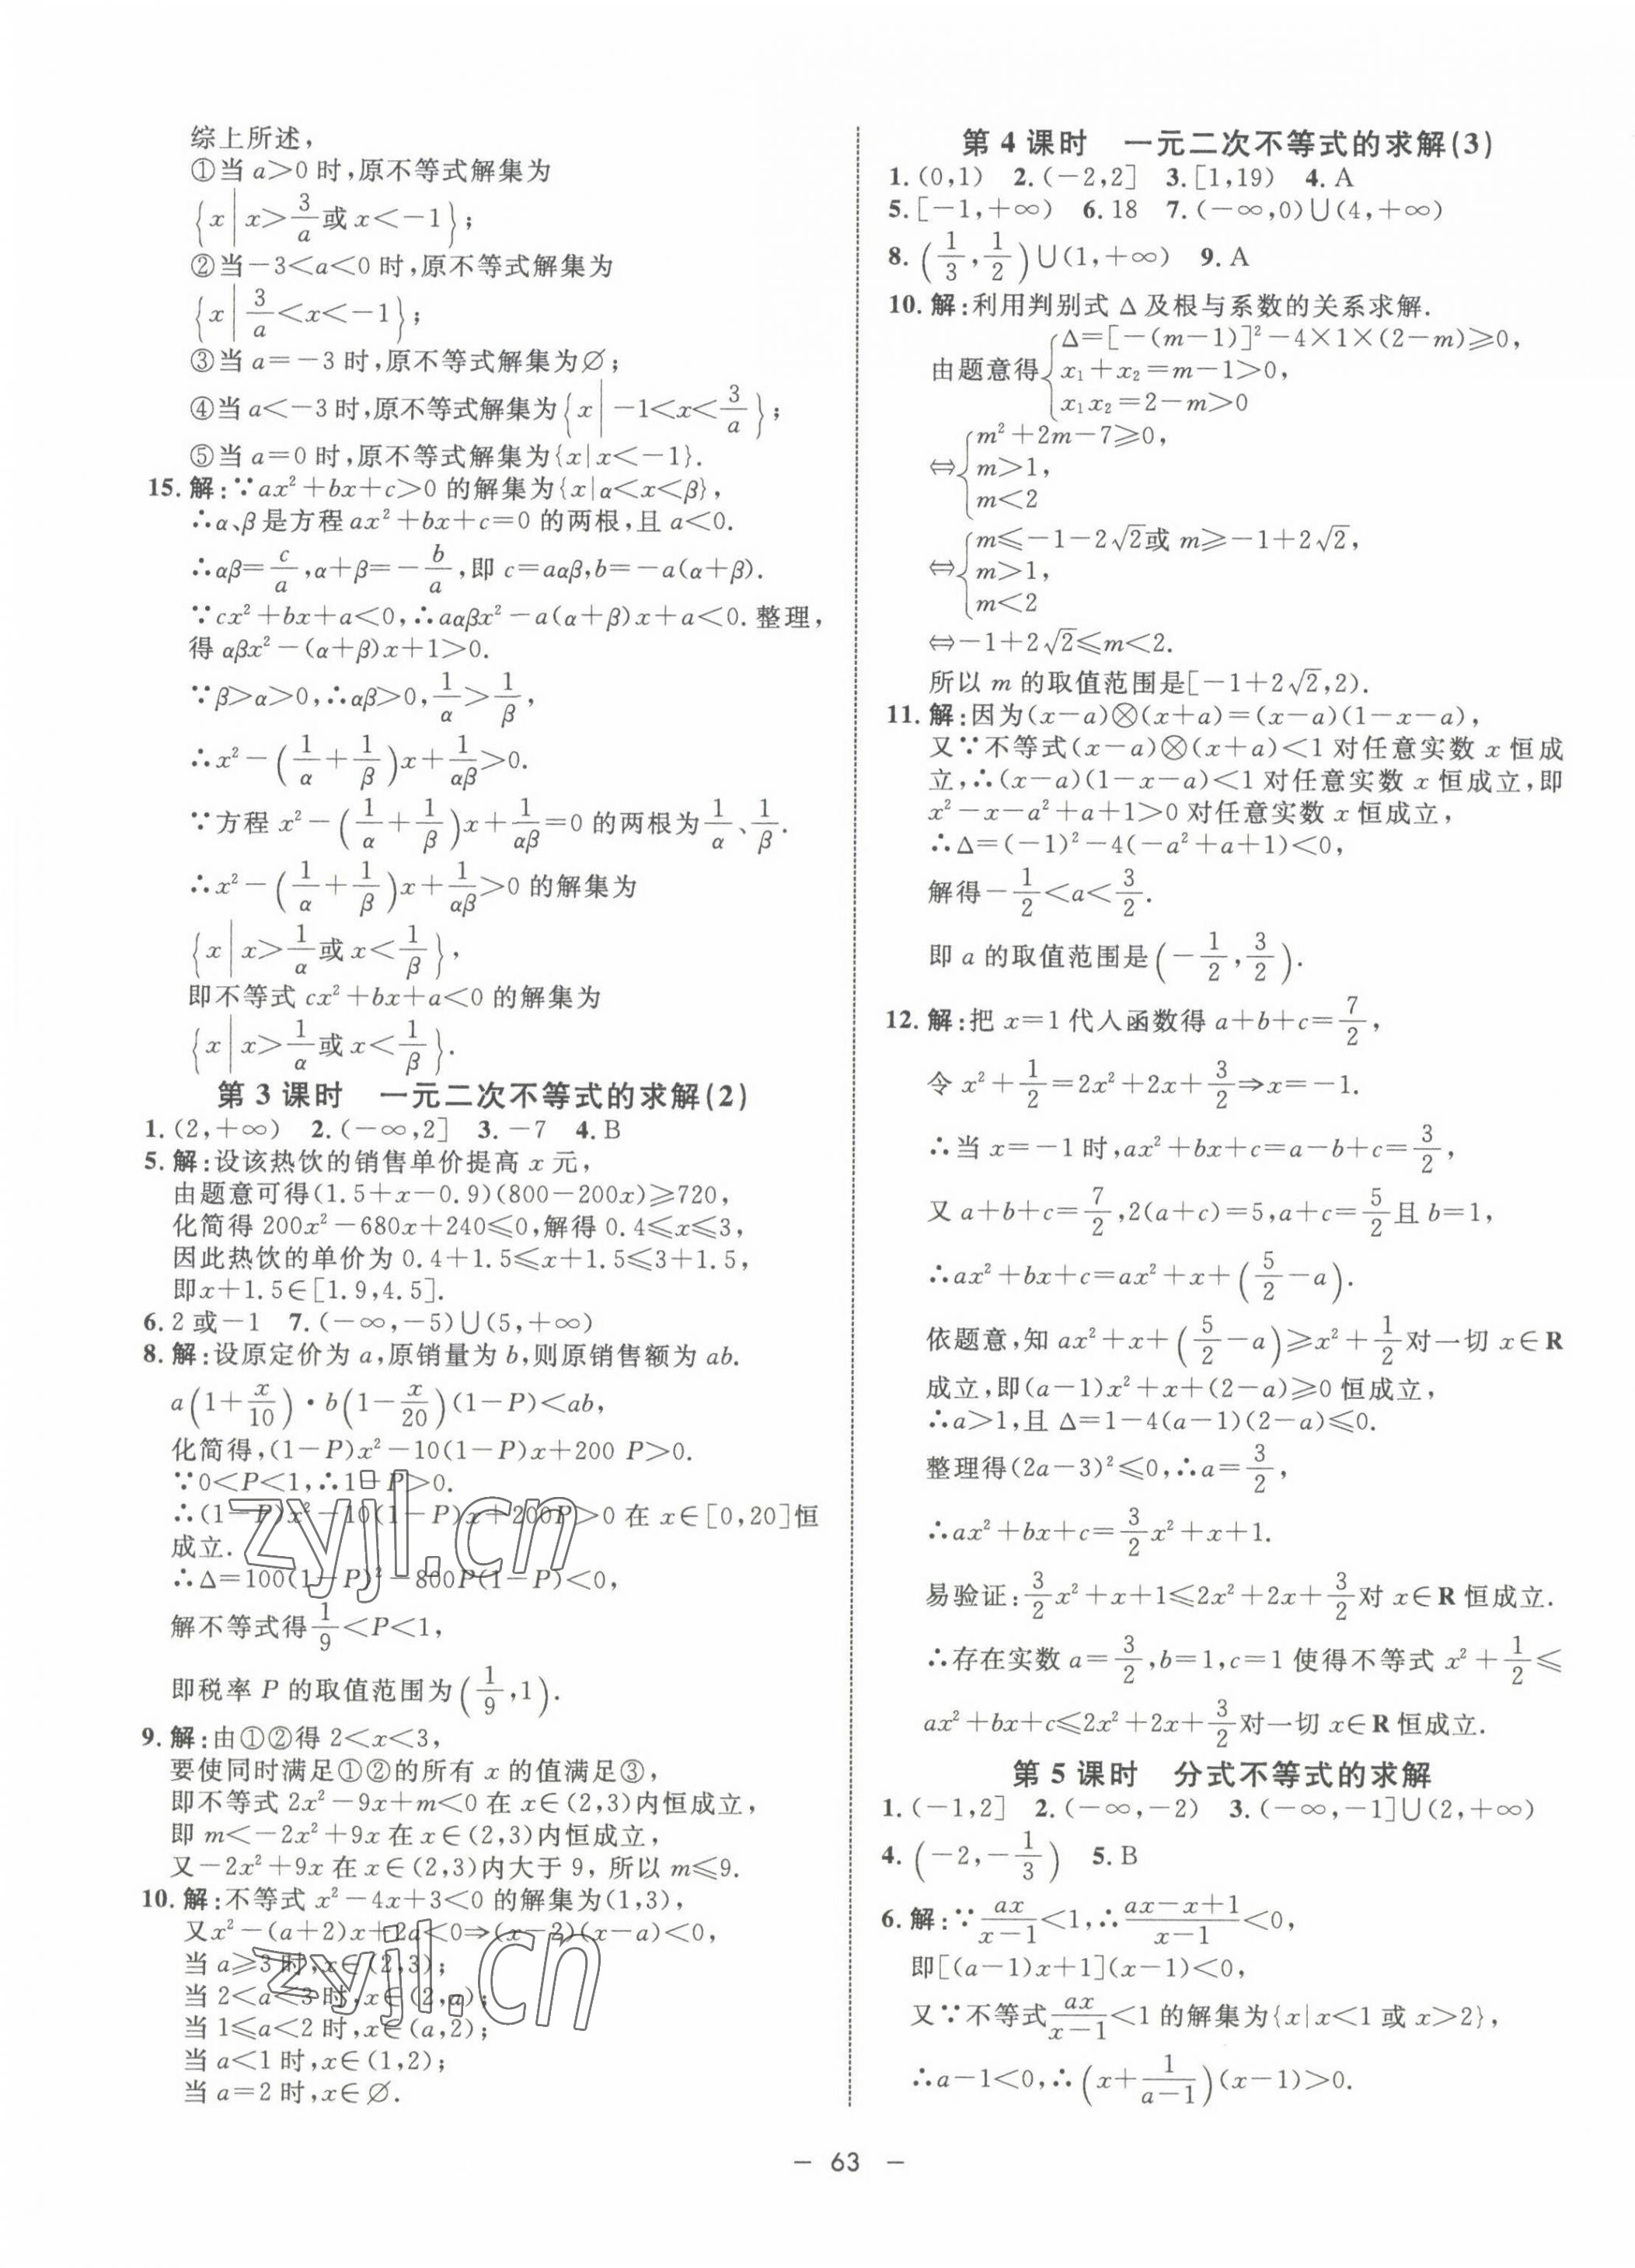 综上所述,
①当 a>0 时,原不等式解集为
{x|x>3/a或 x<-1};
②当-3<a<0 时,原不等式解集为
{x|3/a<x<-1};
③当 a=-3 时,原不等式解集为∅;
④当 a<-3 时,原不等式解集为{x|-1<x<3/a};
⑤当 a=0 时,原不等式解集为{x|x<-1}.
15. 解:∵ax²+bx+c>0 的解集为{x|α<x<β},
∴α、β是方程 ax²+bx+c=0 的两根,且 a<0.
∴αβ=c/a,α+β=-b/a,即 c=aαβ,b=-a(α+β).
∵cx²+bx+a<0,∴aαβx²-a(α+β)x+a<0.整理,
得 αβx²-(α+β)x+1>0.
∵β>α>0,∴αβ>0,1/α>1/β,
∴x²-(1/α+1/β)x+1/αβ>0.
∵方程 x²-(1/α+1/β)x+1/αβ=0 的两根为1/α、1/β.
∴x²-(1/α+1/β)x+1/αβ>0 的解集为
{x|x>1/α或 x<1/β},
即不等式 cx²+bx+a<0 的解集为
{x|x>1/α或 x<1/β}.
第 3 课时 一元二次不等式的求解(2)
1. (2,+∞) 2. (-∞,2] 3. -7 4. B
5. 解:设该热饮的销售单价提高 x 元,
由题意可得(1.5+x-0.9)(800-200x)≥720,
化简得 200x²-680x+240≤0,解得 0.4≤x≤3,
因此热饮的单价为 0.4+1.5≤x+1.5≤3+1.5,
即x+1.5∈[1.9,4.5].
6. 2 或-1 7. (-∞,-5)∪(5,+∞)
8. 解:设原定价为 a,原销量为 b,则原销售额为 ab.
a(1+x/10)·b(1-x/20)(1-P)<ab,
化简得,(1-P)x²-10(1-P)x+200 P>0.
∵0<P<1,∴1-P>0.
∴(1-P)x²-10(1-P)x+200P>0 在 x∈[0,20]恒
成立.
∴Δ=100(1-P)²-800P(1-P)<0,
解不等式得1/9<P<1,
即税率 P 的取值范围为(1/9,1).
9. 解:由①②得 2<x<3,
要使同时满足①②的所有 x 的值满足③,
即不等式 2x²-9x+m<0 在 x∈(2,3)内恒成立,
即 m<-2x²+9x 在 x∈(2,3)内恒成立,
又-2x²+9x 在 x∈(2,3)内大于 9, 所以 m≤9.
10. 解:不等式 x²-4x+3<0 的解集为(1,3),
又x²-(a+2)x+2a<0⇒(x-2)(x-a)<0,
当 a≥3 时,x∈(2,3);
当 2<a<3 时,x∈(2,a);
当 1≤a<2 时,x∈(a,2);
当 a<1 时,x∈(1,2);
当 a=2 时,x∈∅.
第 4 课时 一元二次不等式的求解(3)
1. (0,1) 2. (-2,2] 3. [1,19) 4. A
5. [-1,+∞) 6. 18 7. (-∞,0)∪(4,+∞)
8. (1/3,1/2)∪(1,+∞) 9. A
10. 解:利用判别式 Δ 及根与系数的关系求解.
由题意得{Δ=[-(m-1)]²-4×1×(2-m)≥0,
x₁+x₂=m-1>0,
x₁x₂=2-m>0
⇔{m²+2m-7≥0,
m>1,
m<2
⇔{m≤-1-2√2或 m≥-1+2√2,
m>1,
m<2
⇔-1+2√2≤m<2.
所以 m 的取值范围是[-1+2√2,2).
11. 解:因为(x-a)⊗(x+a)=(x-a)(1-x-a),
又∵不等式(x-a)⊗(x+a)<1 对任意实数 x 恒成
立,∴(x-a)(1-x-a)<1 对任意实数 x 恒成立,即
x²-x-a²+a+1>0 对任意实数 x 恒成立,
∴Δ=(-1)²-4(-a²+a+1)<0,
解得-1/2<a<3/2.
即 a 的取值范围是(-1/2,3/2).
12. 解:把 x=1 代入函数得 a+b+c=7/2,
令 x²+1/2=2x²+2x+3/2⇒x=-1.
∴当 x=-1 时,ax²+bx+c=a-b+c=3/2,
又 a+b+c=7/2,2(a+c)=5,a+c=5/2且 b=1,
∴ax²+bx+c=ax²+x+(5/2-a).
依题意,知 ax²+x+(5/2-a)≥x²+1/2对一切 x∈R
成立,即(a-1)x²+x+(2-a)≥0 恒成立,
∴a>1,且 Δ=1-4(a-1)(2-a)≤0.
整理得(2a-3)²≤0,∴a=3/2,
∴ax²+bx+c=3/2x²+x+1.
易验证:3/2x²+x+1≤2x²+2x+3/2对 x∈R 恒成立.
∴存在实数 a=3/2,b=1,c=1 使得不等式 x²+1/2≤
ax²+bx+c≤2x²+2x+3/2对一切 x∈R 恒成立.
第 5 课时 分式不等式的求解
1. (-1,2] 2. (-∞,-2) 3. (-∞,-1]∪(2,+∞)
4. (-2,-1/3) 5. B
6. 解:∵ax/(x-1)<1,∴(ax-x+1)/(x-1)<0,
即[(a-1)x+1](x-1)<0,
又∵不等式ax/(x-1)<1 的解集为{x|x<1 或 x>2},
∴a-1<0,∴(x+1/(a-1))(x-1)>0.
— 63 —
zyjl.cn
zyjl.cn